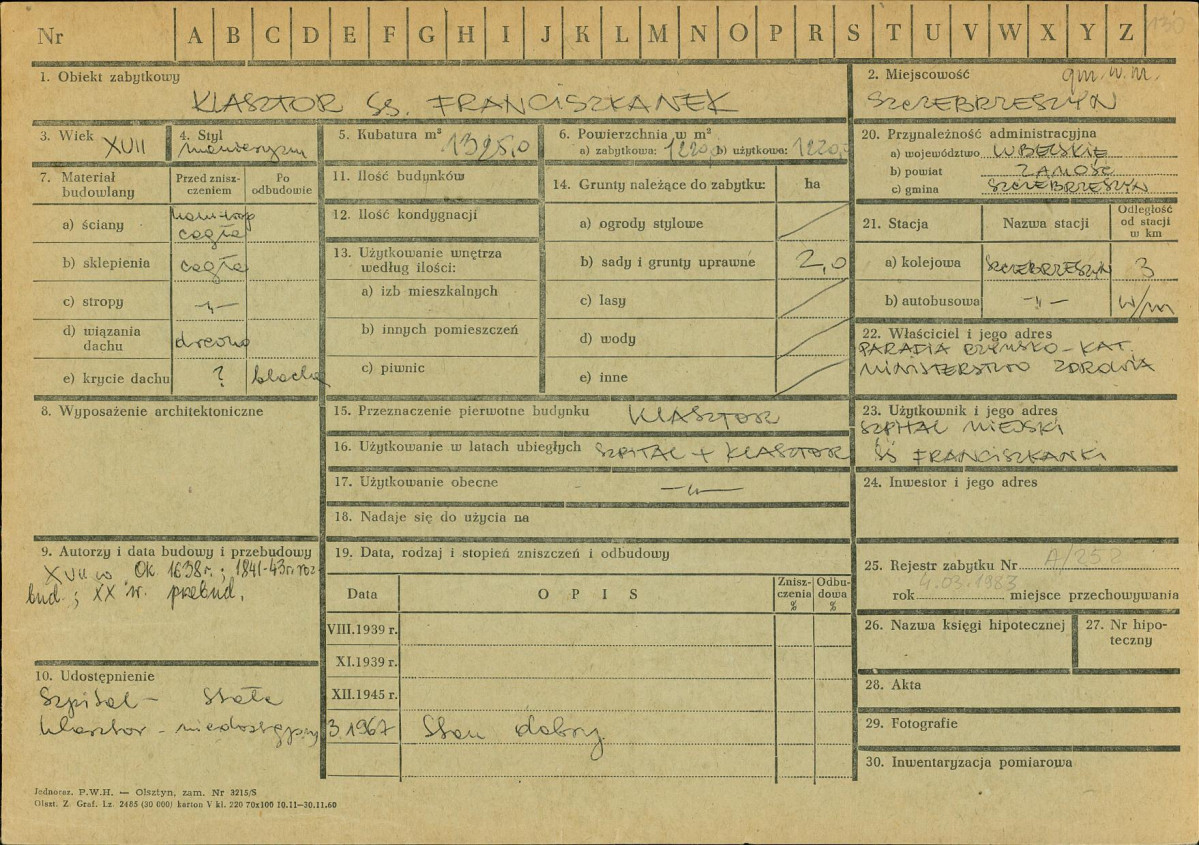 Nr A B C D E F G H I J K L M N O P R S T U V W X Y Z 130
1. Obiekt zabytkowy
KLASZTOR SS. FRANCISZKANEK
2. Miejscowość gm. w. m.
SZCZEBRZESZYN
3. Wiek XVII
4. Styl
manieryzm
5. Kubatura m³ 1395,0
6. Powierzchnia w m²
a) zabytkowa: 1220,0 b) użytkowa: 1220,-
20. Przynależność administracyjna
a) województwo LUBELSKIE
b) powiat ZAMOŚĆ
c) gmina SZCZEBRZESZYN
7. Materiał budowlany
Przed zniszczeniem
Po odbudowie
a) ściany
cegła
b) sklepienia cegła
c) stropy -"-
d) wiązania dachu drewno
e) krycie dachu ? blacha
11. Ilość budynków
12. Ilość kondygnacji
13. Użytkowanie wnętrza według ilości:
a) izb mieszkalnych
b) innych pomieszczeń
c) piwnic
14. Grunty należące do zabytku: ha
a) ogrody stylowe
b) sady i grunty uprawne 2,0
c) lasy
d) wody
e) inne
21. Stacja Nazwa stacji Odległość od stacji w km
a) kolejowa SZCZEBRZESZYN 3
b) autobusowa -"- w/m
22. Właściciel i jego adres
PARAFIA RZYMSKO-KAT.
MINISTERSTWO ZDROWIA
8. Wyposażenie architektoniczne
15. Przeznaczenie pierwotne budynku KLASZTOR
16. Użytkowanie w latach ubiegłych SZPITAL + KLASZTOR
17. Użytkowanie obecne -"-
18. Nadaje się do użycia na
23. Użytkownik i jego adres
SZPITAL MIEJSKI
SS FRANCISZKANKI
24. Inwestor i jego adres
9. Autorzy i data budowy i przebudowy
XVII w. Ok. 1638r.; 1841-43r. roz-
bud.; XX w. przebud.
19. Data, rodzaj i stopień zniszczeń i odbudowy
Data OPIS Zniszczenia % Odbudowa %
VIII.1939 r.
XI.1939 r.
XII.1945 r.
3.1967 Stan dobry.
25. Rejestr zabytku Nr A/252
rok 4.03.1983 miejsce przechowywania
26. Nazwa księgi hipotecznej
27. Nr hipoteczny
28. Akta
29. Fotografie
30. Inwentaryzacja pomiarowa
10. Udostępnienie
Szpital - stałe
klasztor - niedostępny
Jednoraz. P.W.H. — Olsztyn, zam. Nr 3215/S
Olszt. Z. Graf. Lz. 2485 (30 000) karton V kl. 220 70x100 10.11—30.11.60